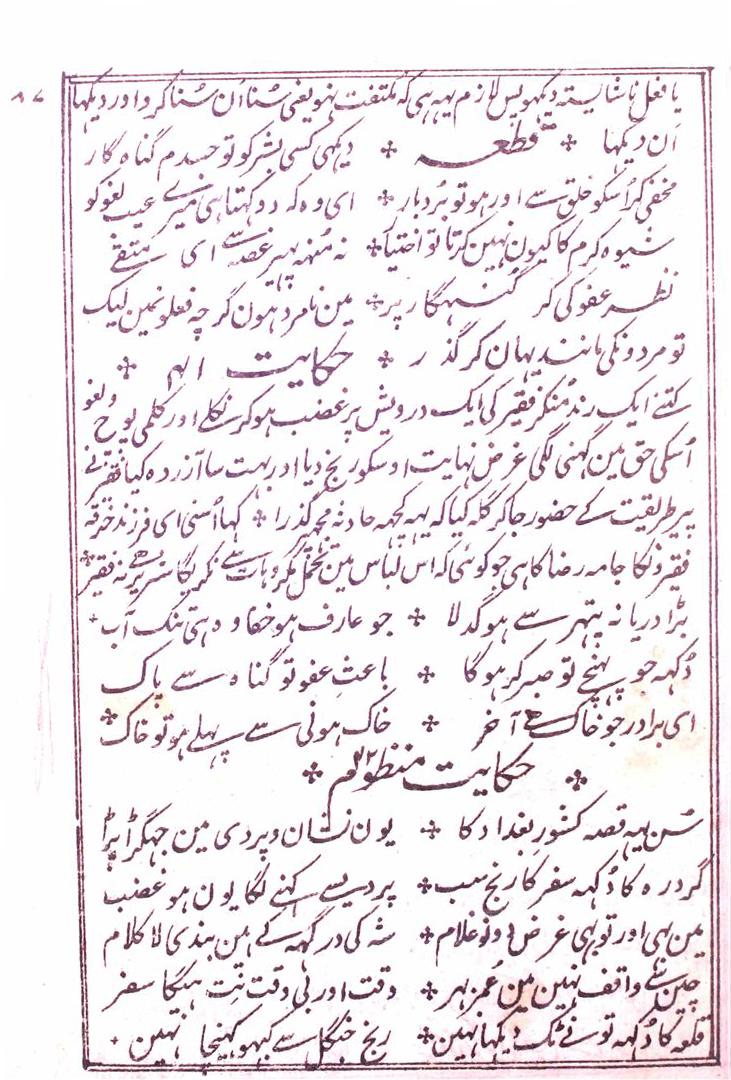 ۸۷
یا فعل ناشایستہ دیکھو پس لازم یہہ ہی کہ مُلتفت نہو یعنی سُنا اَن سُنا کرو اور دیکھا
اَن دیکھا ٭ قطعہ ٭ دیکھی کسی بشر کو تو جسدم گناہ گار
مخفی کر اُسکو خلق سے اور ہو تو بُردبار ٭ ای وہ کہ دو کہتا ہی میرے عیب لغو کو
شیوہ کرم کا کیون نہین کرتا تو اختیار ٭ نہ مُنہہ پھیر غصہ سے ای متقے
نظر عفو کی کر گُنہگار پر ٭ مین نامرد ہون گرچہ فعلونمین لیک
تو مردونکی مانند یہان کر گذر ٭ حکایت ۴۱ ٭
کتنے ایک رند مُنکر فقیر کی ایک درویش پر غضب ہو کر نکلے اور کلمی پوچ و لغو
اُسکی حق مین کہنی لگی غرض نہایت اوسکو رنج دیا اور بہت سا آزردہ کیا فقیر نے
پیر طریقت کے حضور جا کر گلہ کیا کہ یہہ کچہہ حادثہ مجھپر گذرا ٭ کہا اُسنی ای فرزند خرقہ
فقیرونکا جامہ رضا کا ہی جو کوئی کہ اس لباس مین تحمل مکروہات سے نکریگا شریر ہے نہ فقیر
بڑا دریا نہ پتھر سے ہو گدلا ٭ جو عارف ہو خفا وہ ہی تنک آب
دُکہہ جو پہنچے تو صبر کر ہوگا ٭ باعثِ عفو تو گناہ سے پاک
ای برادر جو خاک ہے آخر ٭ خاک ہونی سے پہلے ہو تو خاک
٭ حکایت منظوم ۴۲ ٭
سُن یہہ قصہ کشورِ بغداد کا ٭ یون نشان و پردی مین جھگڑا پڑا
گردِ رہ کا دُکہہ سفر کا رنج سب ٭ پردیسے کہنے لگا یون ہو غضب
مین بھی اور تو بھی غرض دونو غلام ٭ شہ کی درگہہ کے ہین بندی لا کلام
چین سے واقف نہین مین عُمر بھر ٭ وقت اور بی وقت نِت ہیگا سفر
قلعہ کا دُکہہ تو نے ٹک دیکھا نہین ٭ رنج جنگل سے کبھو کھینچا نہین